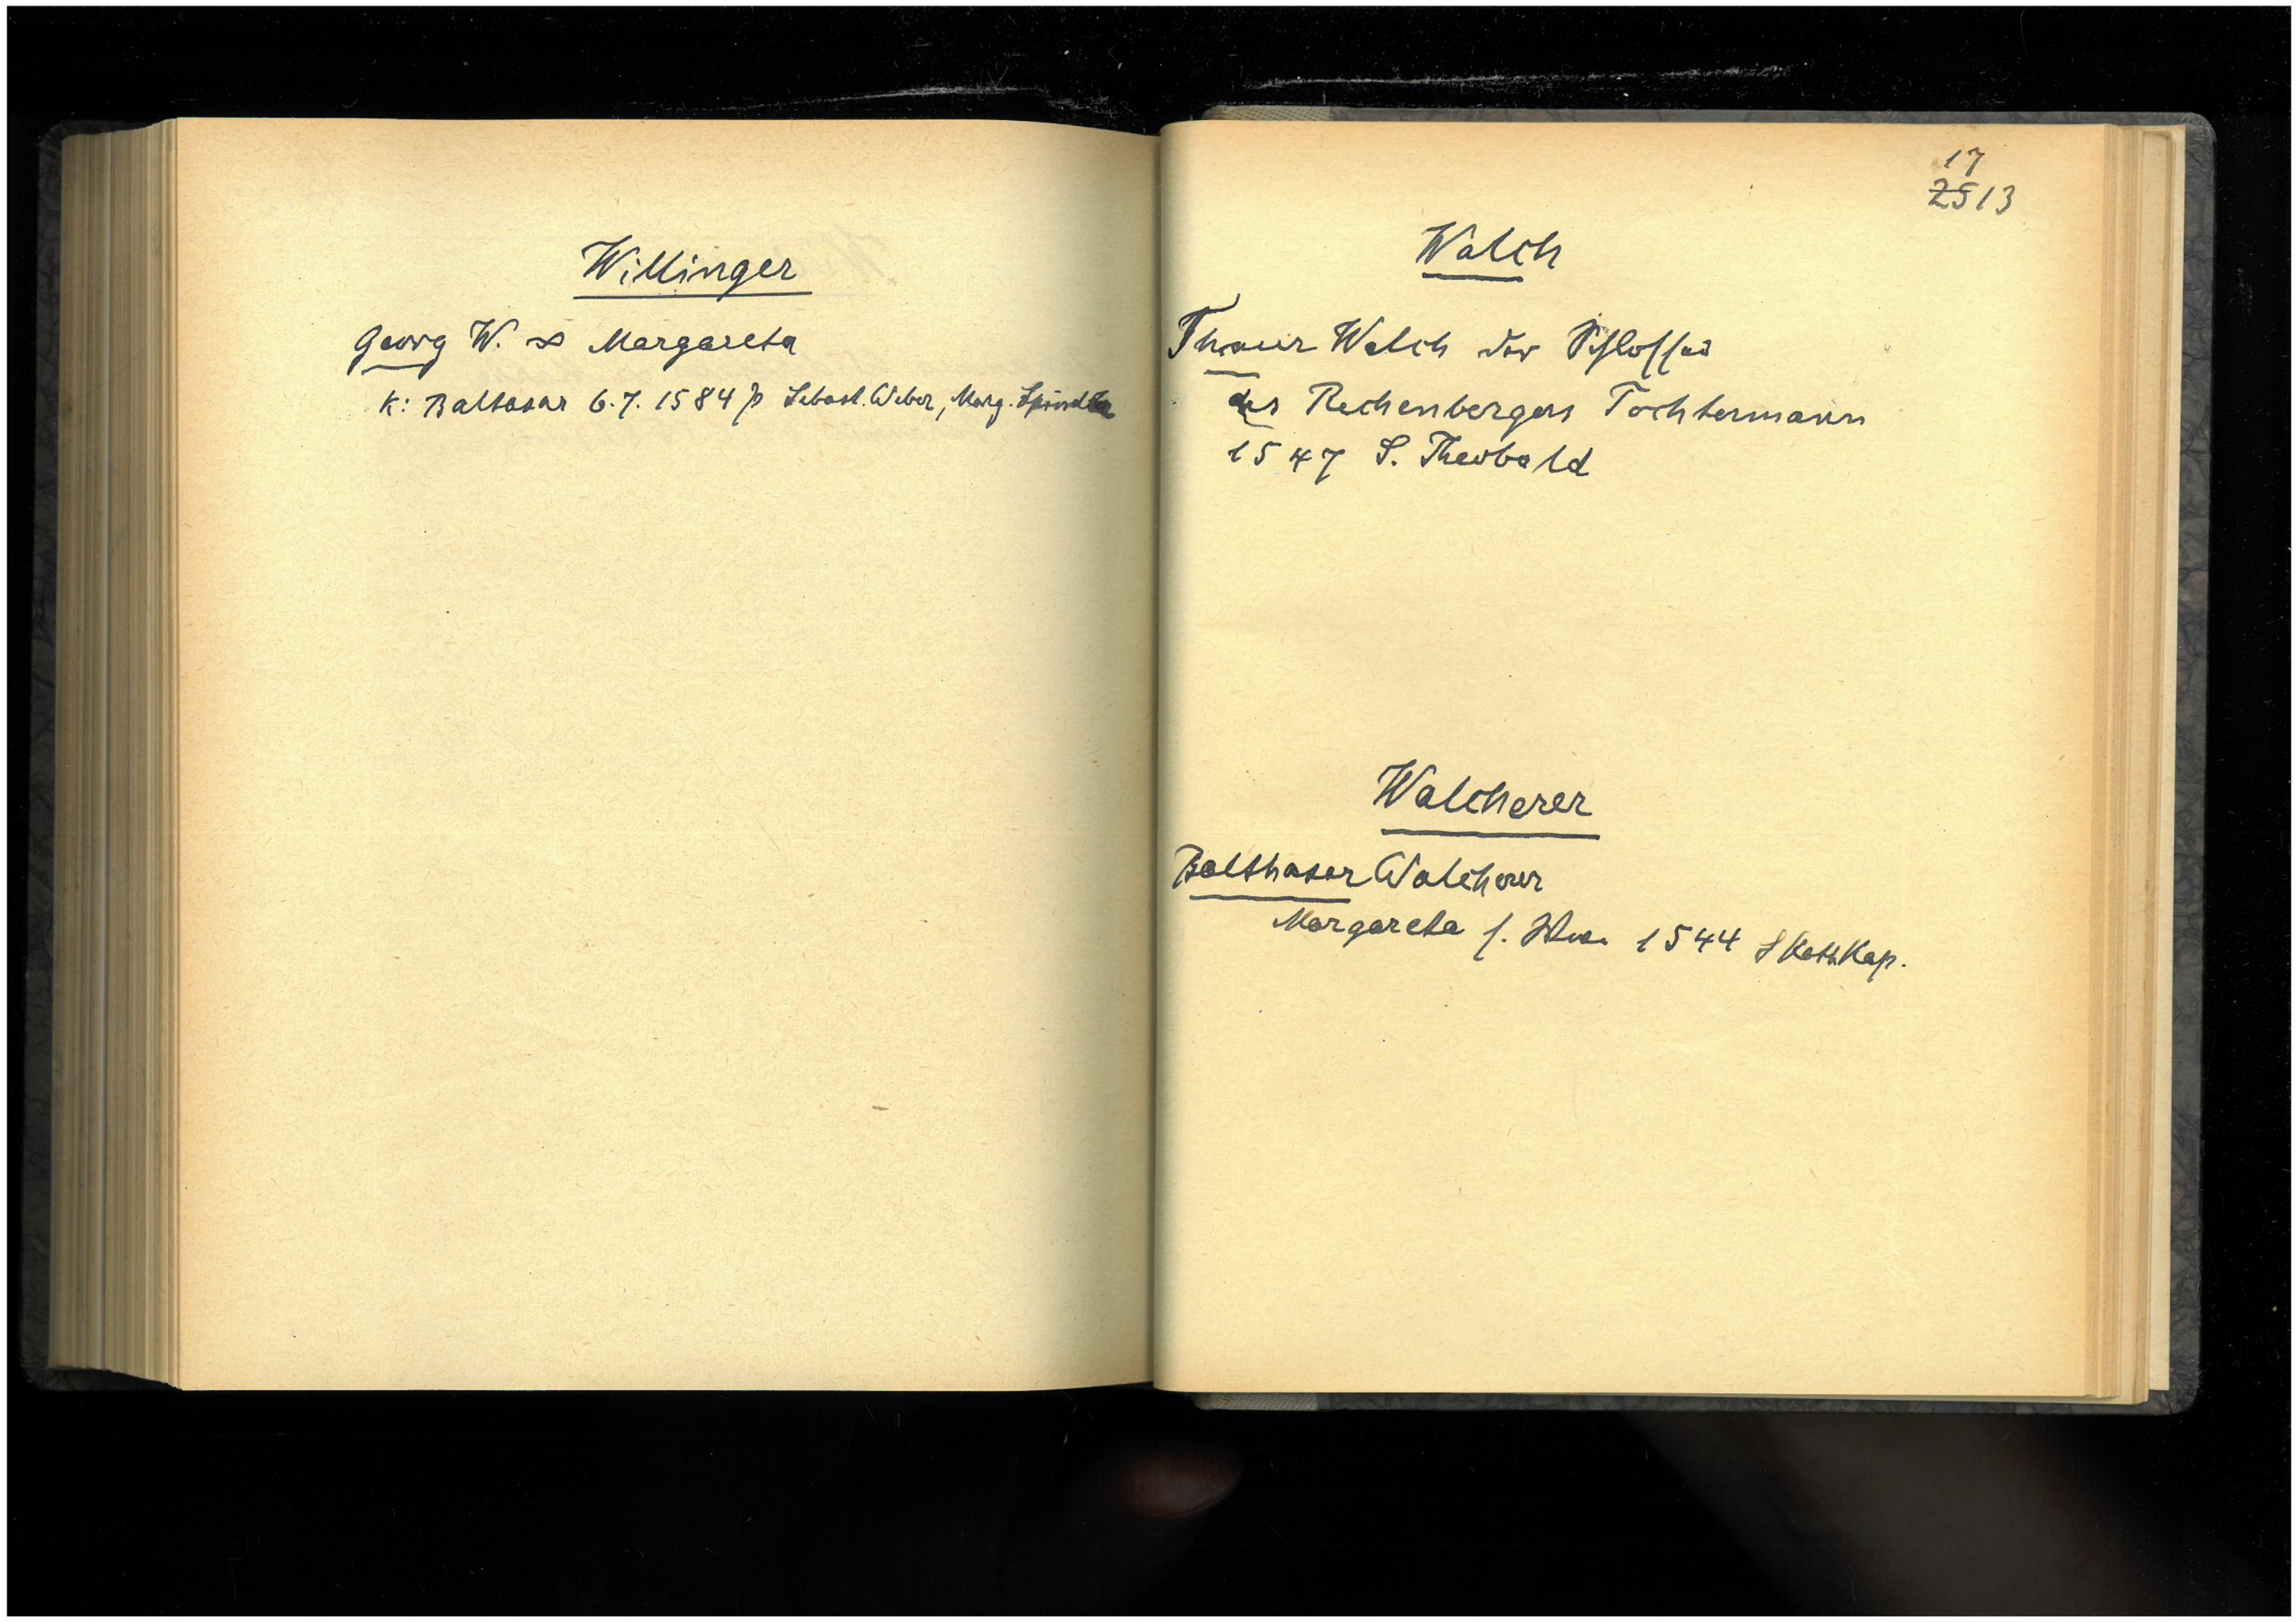 Willinger
Georg W. ∞ Margareta
K: Baltasar 6.7.1584 p Sebast. Weber, Marg. Spindler
17
25 13
Walch
Walch der Schlosser
des Rechenbergers Tochtermann
1547 S. Theobald
Walcherer
Balthasar Walcherer
Margareta s. 1544 S Kath. Kap.